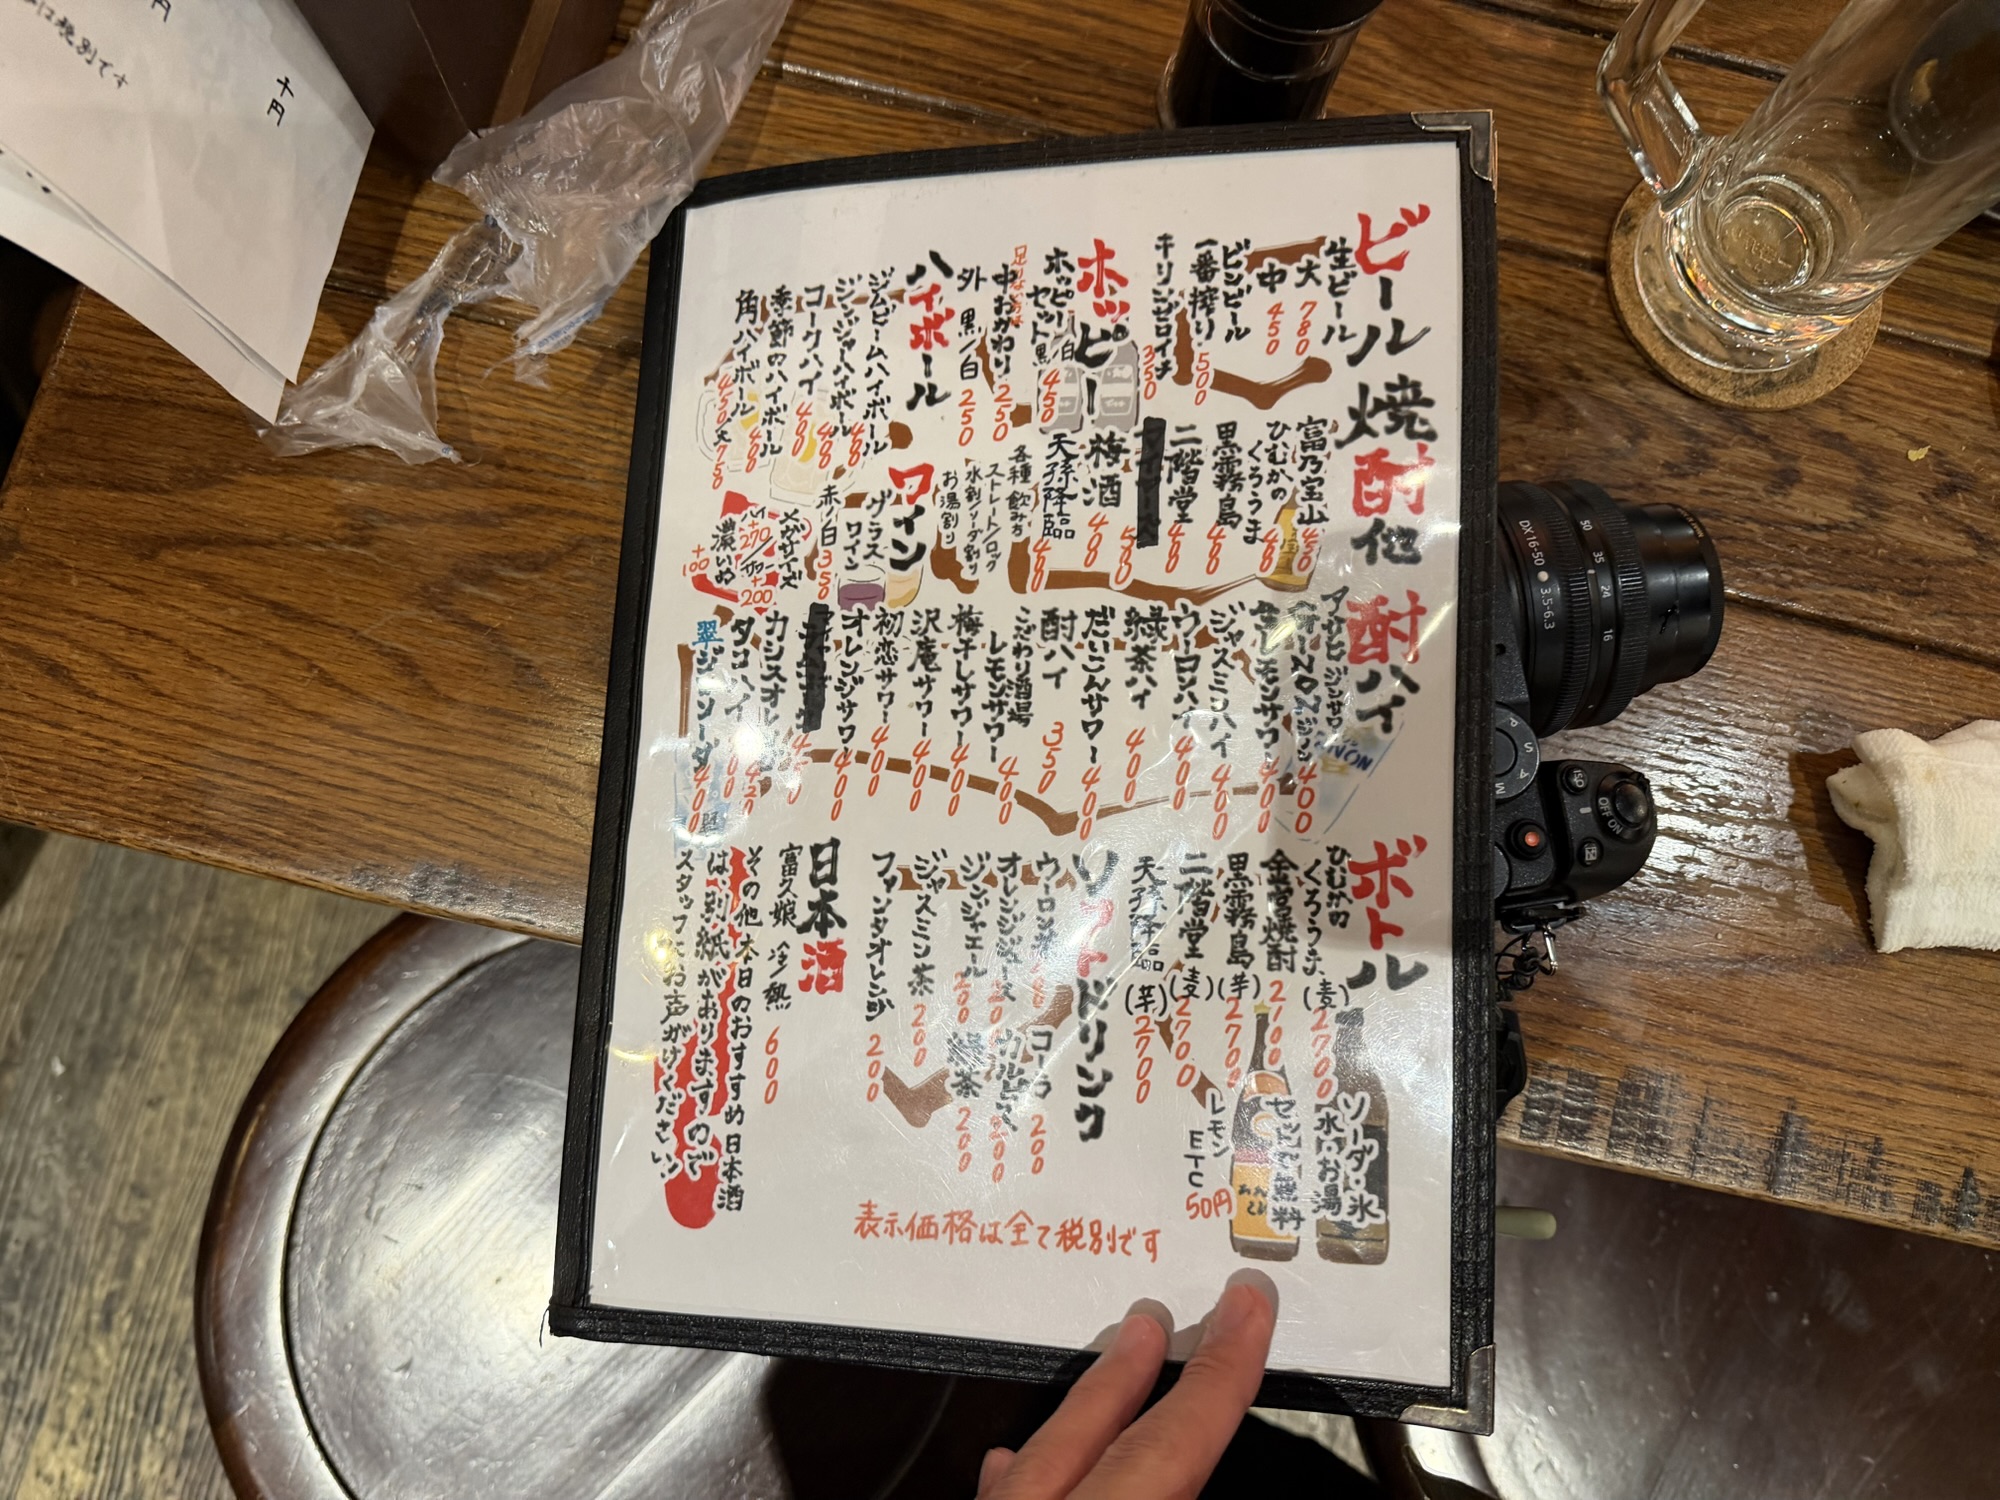 ビール
生ビール
大 780
中 450
ビンビール
一番搾り 500
キリンゼロイチ 350
ホッピー
ホッピーセット 黒/白 450
足りない方は
中おかわり 250
外 黒/白 250
ハイボール
ジムビームハイボール 400
ジンジャーハイボール 400
コークハイ 400
季節のハイボール 400
角ハイボール 450 大750
焼酎他
富乃宝山 450
ひむかのくろうま 400
黒霧島 400
二階堂 400
500
梅酒 400
天孫降臨 400
各種 飲み方
ストレート/ロック
水割り/ソーダ割り
お湯割り
ワイン
グラスワイン
赤/白 350
メガサイズ
ハイ+270/サワー+200
濃いめ +100
酎ハイ
アサヒ ジンサワー
400
生レモンサワー 400
ジャスミンハイ 400
ウーロンハイ 400
緑茶ハイ 400
だいこんサワー 400
酎ハイ 350
こだわり酒場
レモンサワー 400
梅干しサワー 400
沢庵サワー 400
初恋サワー 400
オレンジサワー 400
カシスオレンジ 420
タコハイ 400
翠ジンソーダ 400
ボトル
ひむかの
くろうま (麦) 2700
金宮焼酎 2700
黒霧島 (芋) 2700
二階堂 (麦) 2700
天孫降臨 (芋) 2700
ソーダ・氷
水・お湯
セット無料
レモン
ETC
50円
ソフトドリンク
ウーロン茶 200
コーラ 200
オレンジジュース 200
カルピス 200
ジンジャエール 200
緑茶 200
ジャスミン茶 200
ファンタオレンジ 200
日本酒
富久娘 冷/熱 600
その他 本日のおすすめ日本酒
は、別紙がありますので
スタッフにお声がけください!
表示価格は全て税別です
千円
円
は税別です
DX 16-50
3.5-6.3
50
35
24
16
P
S
A
M
ISO
OFF ON